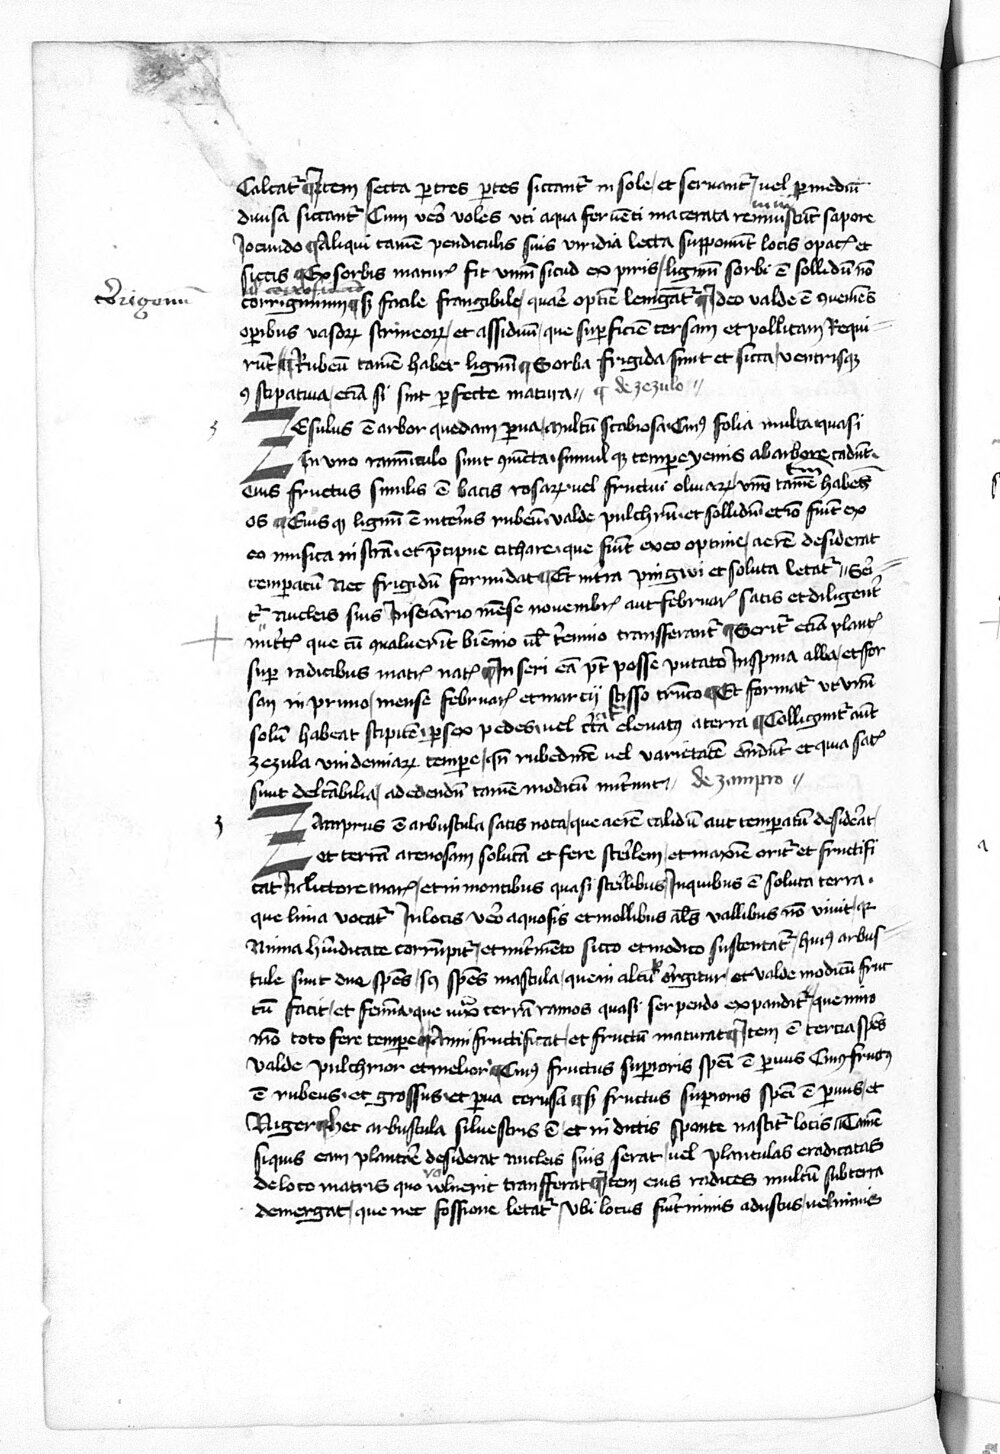 Calcatr ¶ Item secta ptres ptes siccantr in sole / et servantr / vel p mediu
divisa siccantr / Cum vero voles uti aqua ferventi macerata reminiscut sapore
Jocundo ¶ Aliqui tame pendiculis suis viridia lecta supponunt locis opacr et
siccis ¶ Ex sorbis maturr fit vinu sicud ex piris / lignu sorbi e sollidu no
corriginum ¶ sz facile frangibile / quare optie levigatr ¶ Ideo valde e quenies
opibus vasorz scrineorz / et assiduu / que supficie tersam et pollitam Requi
runt ¶ Rubeu tame habet lignu ¶ Sorba frigida sunt et sicca / ventrisqz
9stipativa / ecia si sint pfecte matura // ¶ de zezulo //
ZEsulus e arbor quedam pva / multu scabiosa. Cui9 folia multa quasi
In uno ramunculo sunt iuncta. simul qz tempe yemis ab arbore cadunt.
Eius fructus similis e bacis rosarz. vel fructui olivarz / unu tame habens
os ¶ Eius qz lignu e interius rubeu. valde pulchru. et sollidu et io fiut ex
eo musica instra. et pcipue cithare. que fiut ex eo optime / aere desiderat
temperatu nec frigidu formidat ¶ Et intra pingwi et soluta letatr // Seri
tr nucleis suis In seiario mese novembr aut februarr satis et diligentr
nutrtr que cu qvaluerit biennio ul trennio transfferantr ¶ Seritr ecia plantr
sup radicibus matr natr ¶ Inseri ea pt posse puta to In spina alba / et for
san in pruno / mense februarr et marcii scisso trunco ¶ Et formatr ut unu
solu habeat stipite. p sex pedes. vel cta elevatu a terra ¶ Colligutr aut
zezula vindemiarz tempe / qn rubedine vel varietate ondunt et quia satr
sunt delcabilia / ad edendu tame modicu nutriunt // de zampro //
ZAmprus e arbustula satis nota / que aere calidu aut temperatu desiderat /
et terra arenosam soluta et fere sterilem / et maxie oritr et fructifi
cat In lictore marr / et in montibus quasi sterilibus In quibus e soluta terra.
que lima vocatr In locis vero aquosis et mollibus als vallibus no vivit / qr
Nimia humditate corrupitr / et nutrmento sicco et modico sustentatr / huius arbus
tule sunt due spes / scz spes mascula / quem altu erigitur / et valde modicu fruc
tu facit / et femia. que iuxta terra ramos quasi serpendo expanditr / que nimo
mo toto fere tempe Anni fructificat / et fructu maturat ¶ Item e tercia spes
valde pulchrior et melior ¶ Cui9 fructus supioris spei e pvus Cui9 fruct9
e rubeus. et grossus. et pva cerusa ¶ sz fructus supioris spei e pvus / et
Niger ¶ hec arbustula silvestris e / et in dictis sponte nascitr locis ¶ Tame
siquis eam plantae desiderat nucleis suis serat / vel plantulas eradicatas
de loco matris quo voluerit transfferat ¶ Item eius radices multu subterra
demergat / que nec fossione letatr / ubi locus fuit nimis adustus / vel nimis